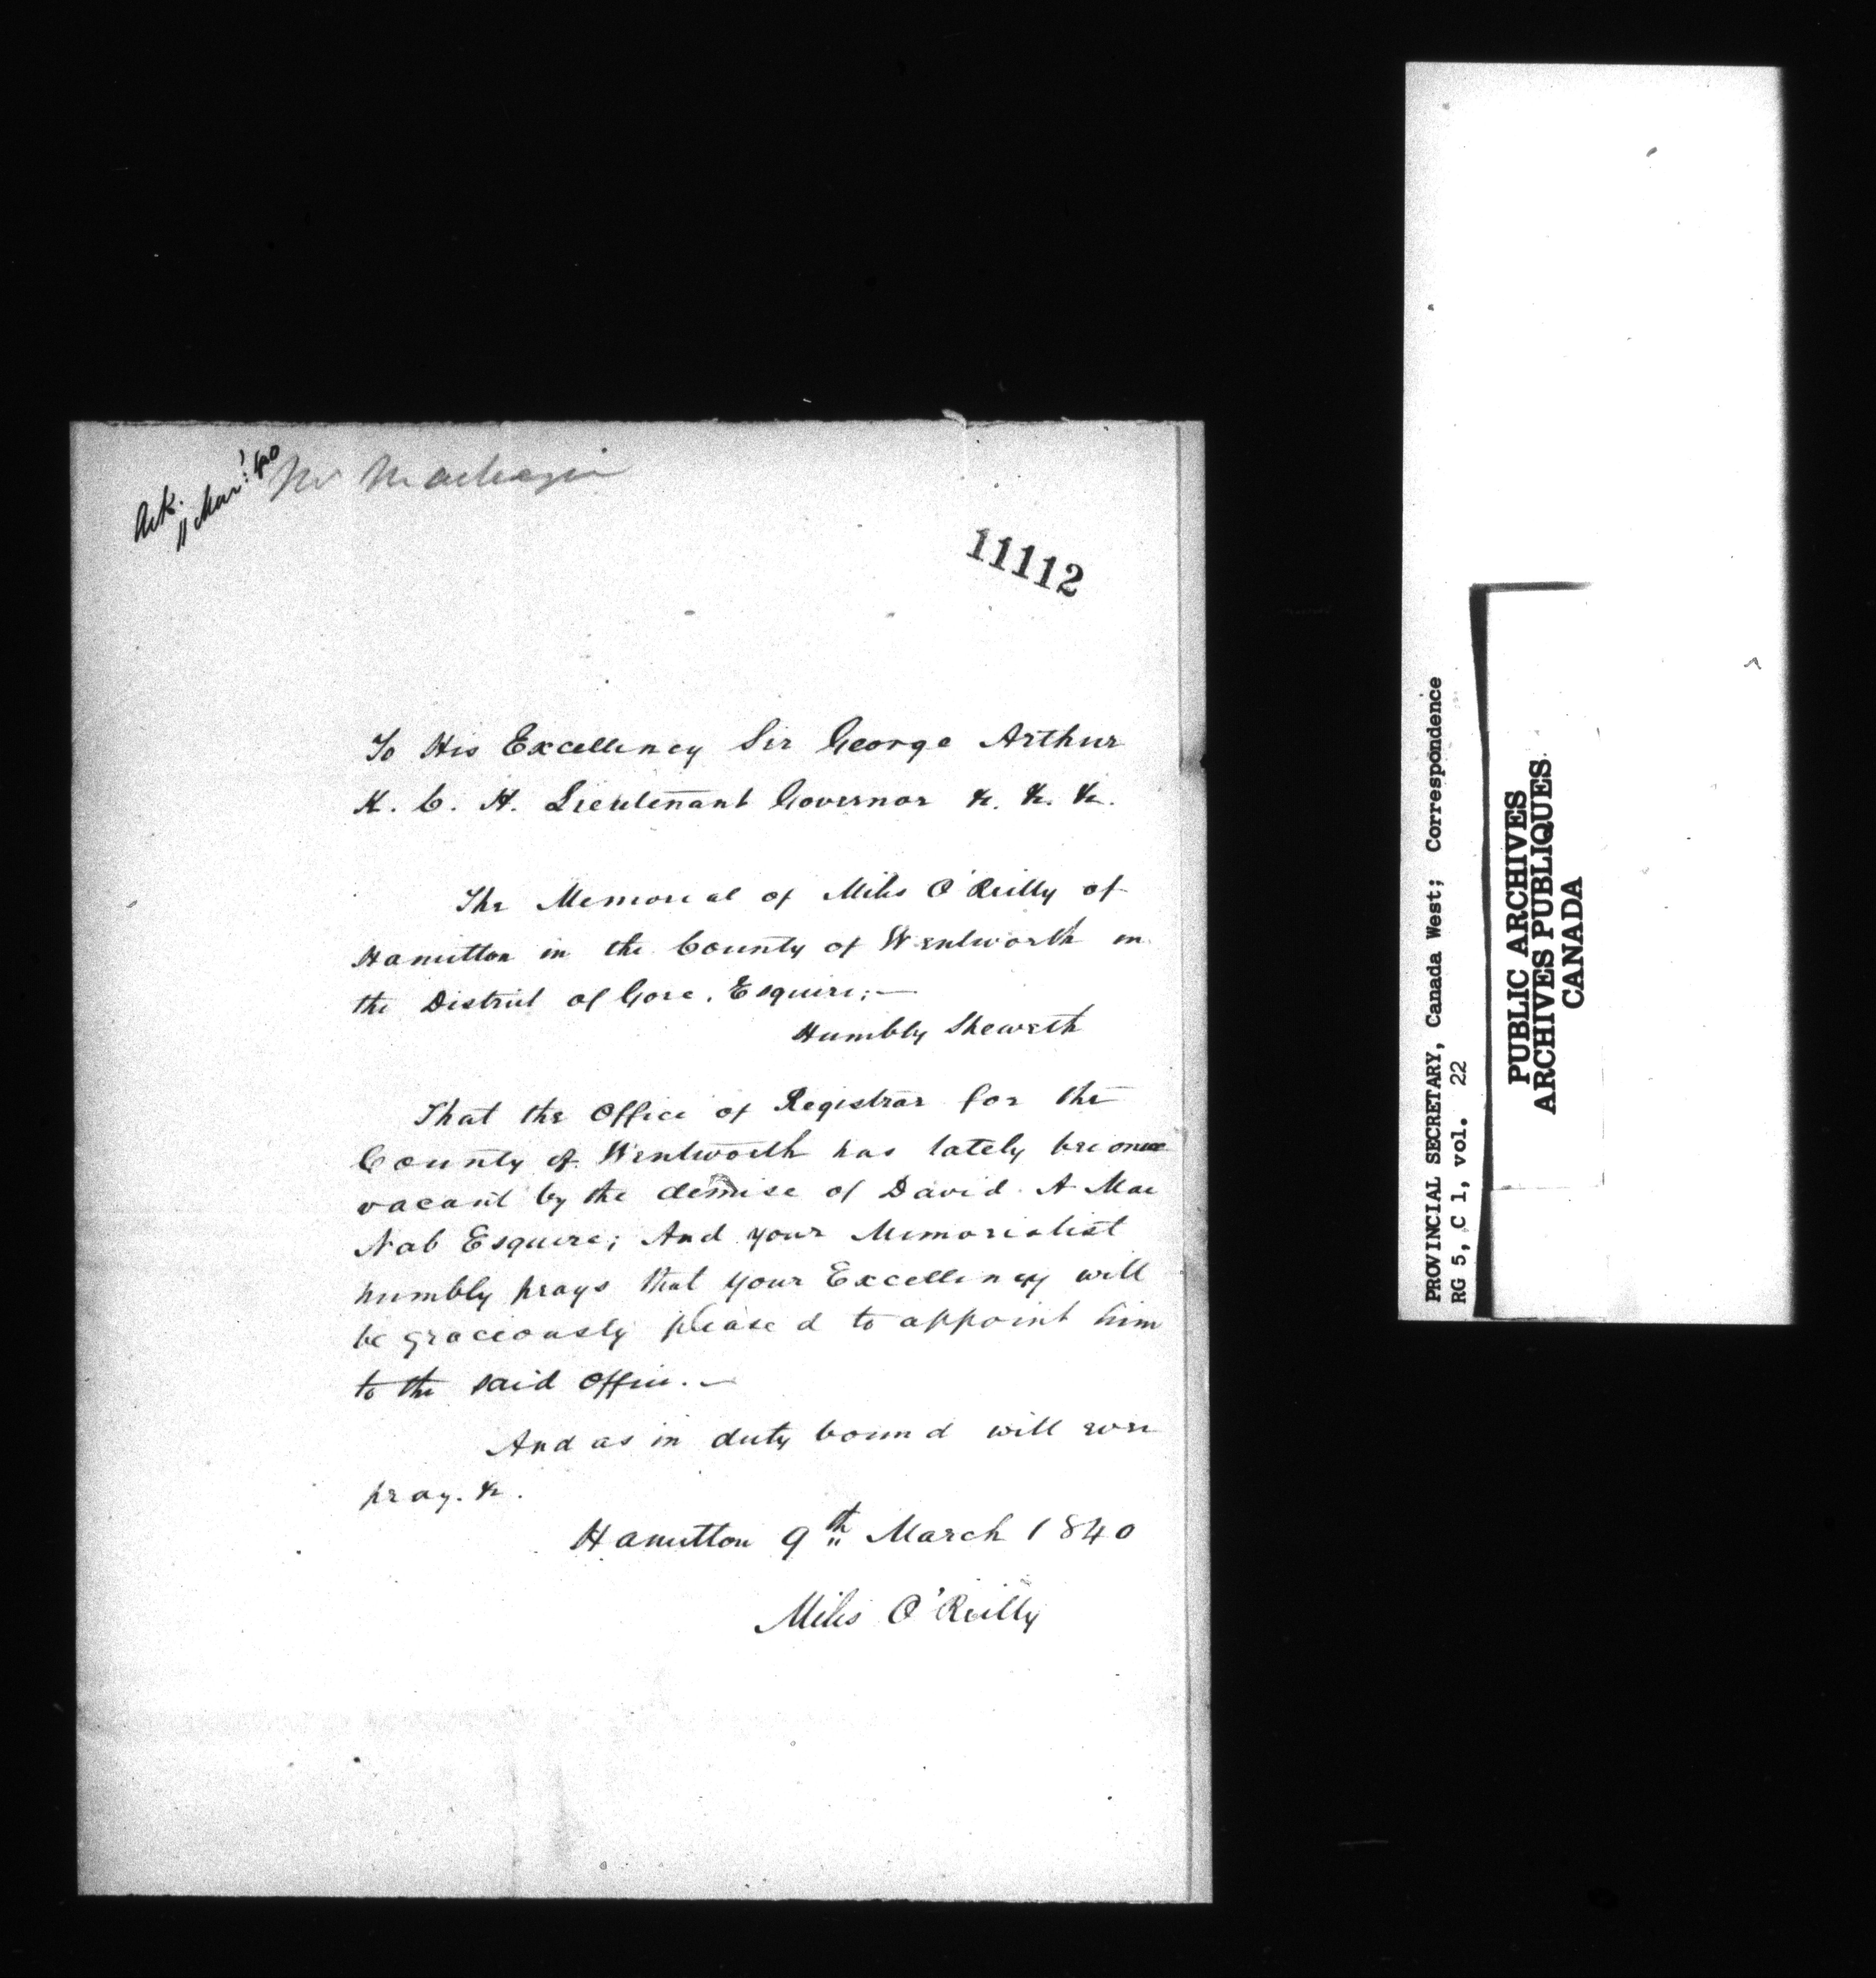 Ack.
11 Mar: 40
Mr
11112
To His Excellency Sir George Arthur
K. C. H. Lieutenant Governor &c. &c. &c.
The Memorial of Miles O'Reilly of
Hamilton in the County of Wentworth in
the District of Gore, Esquire;—
Humbly Sheweth
That the Office of Registrar for the
County of Wentworth has lately become
vacant by the demise of David A Mac
Nab Esquire; And your Memorialist
humbly prays that your Excellency will
be graciously pleased to appoint him
to the said Office.—
And as in duty bound will ever
pray. &c.
Hamilton 9th March 1840
Miles O'Reilly
PROVINCIAL SECRETARY, Canada West; Correspondence
RG 5, C 1, vol. 22
PUBLIC ARCHIVES
ARCHIVES PUBLIQUES
CANADA